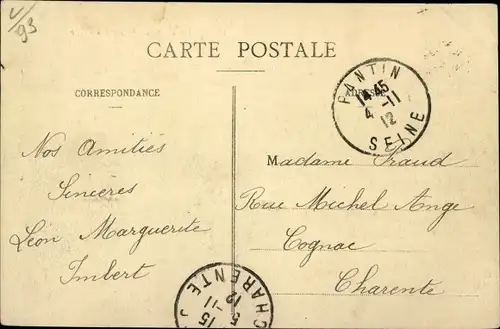 V/93
CARTE POSTALE
CORRESPONDANCE
ADRESSE
PANTIN
14-45
4-11
12
SEINE
Nos Amitiés
Sincères
Léon Marguerite
Imbert
Madame Fraud
Rue Michel Ange
Cognac
Charente
CHARENTE
15
5-11
12